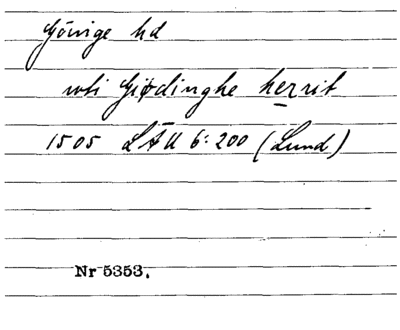 Göinge hd
uti Giødinghe herrit
1505 LÄU 6:200 (Lund)
Nr 5353.